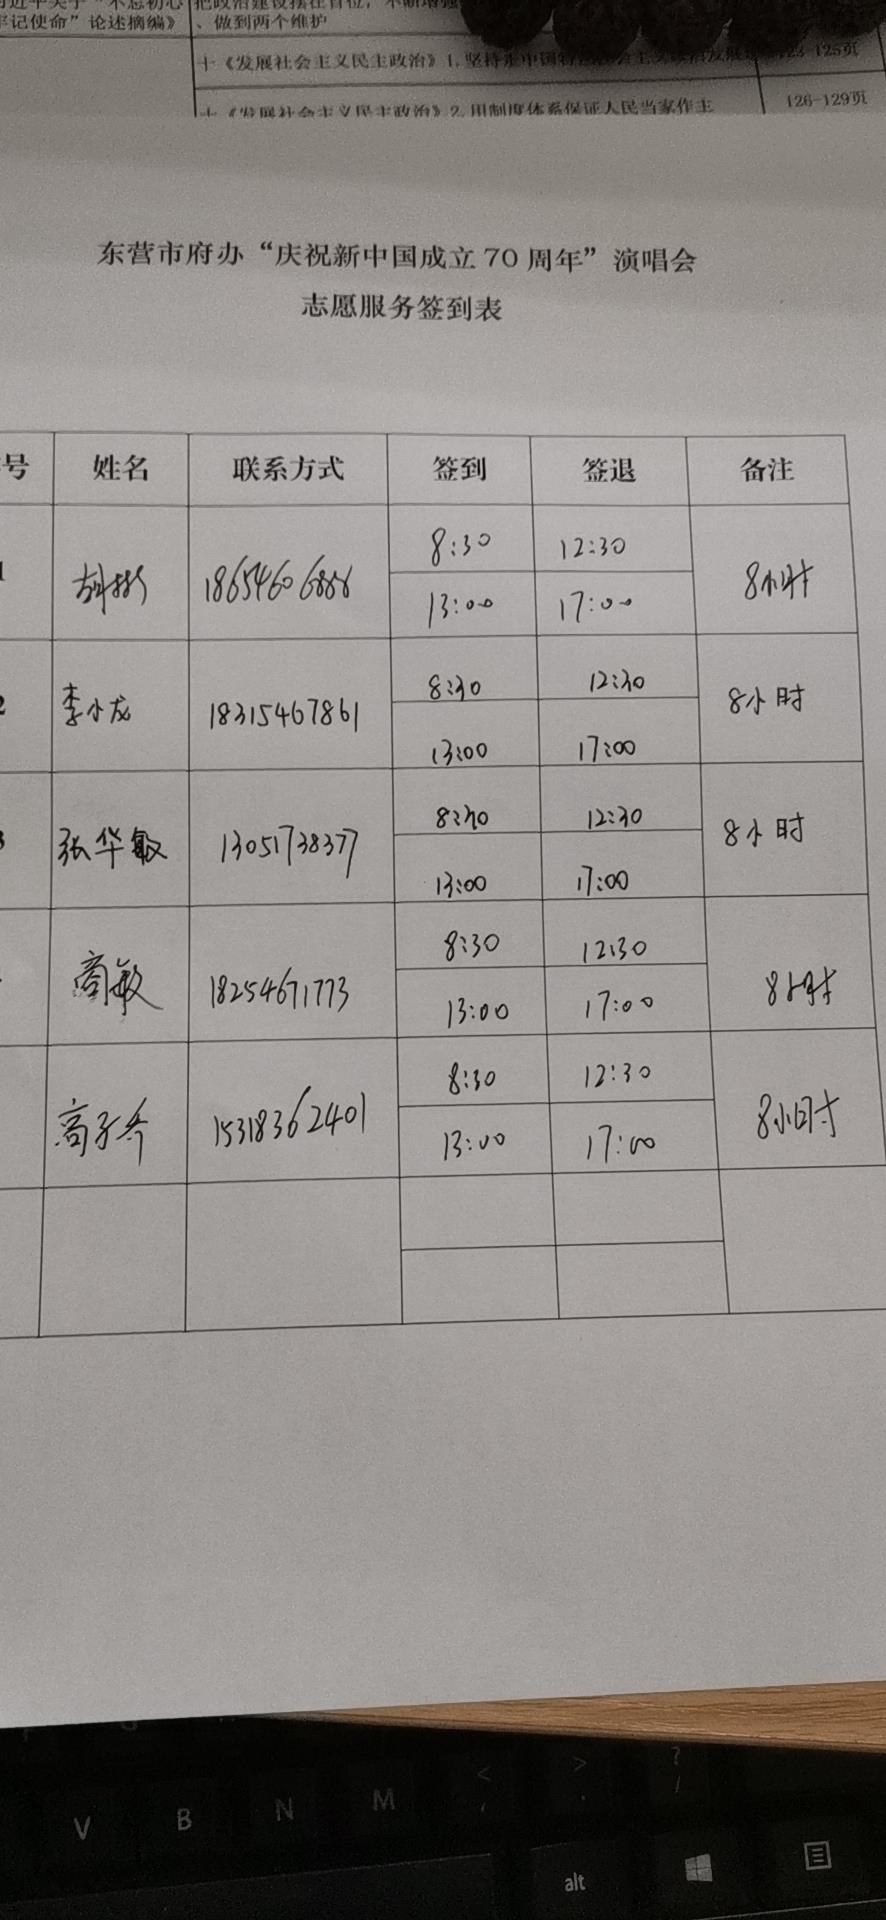 牢记使命”论述摘编》
、做到两个维护
十《发展社会主义民主政治》1.坚持走中国
123-125页
十《发展社会主义民主政治》2.用制度体系保证人民当家作主
126-129页
东营市府办“庆祝新中国成立 70 周年”演唱会
志愿服务签到表
号 姓名 联系方式 签到 签退 备注
1 胡彬 8:30 12:30 8小时
13:00 17:00
2 李小龙 18315467861 8:30 12:30 8小时
13:00 17:00
3 张华敏 13051738377 8:30 12:30 8小时
13:00 17:00
商敏 18254671773 8:30 12:30 8小时
13:00 17:00
15318362401 8:30 12:30 8小时
13:00 17:00
V B N M < , > . ? /
alt